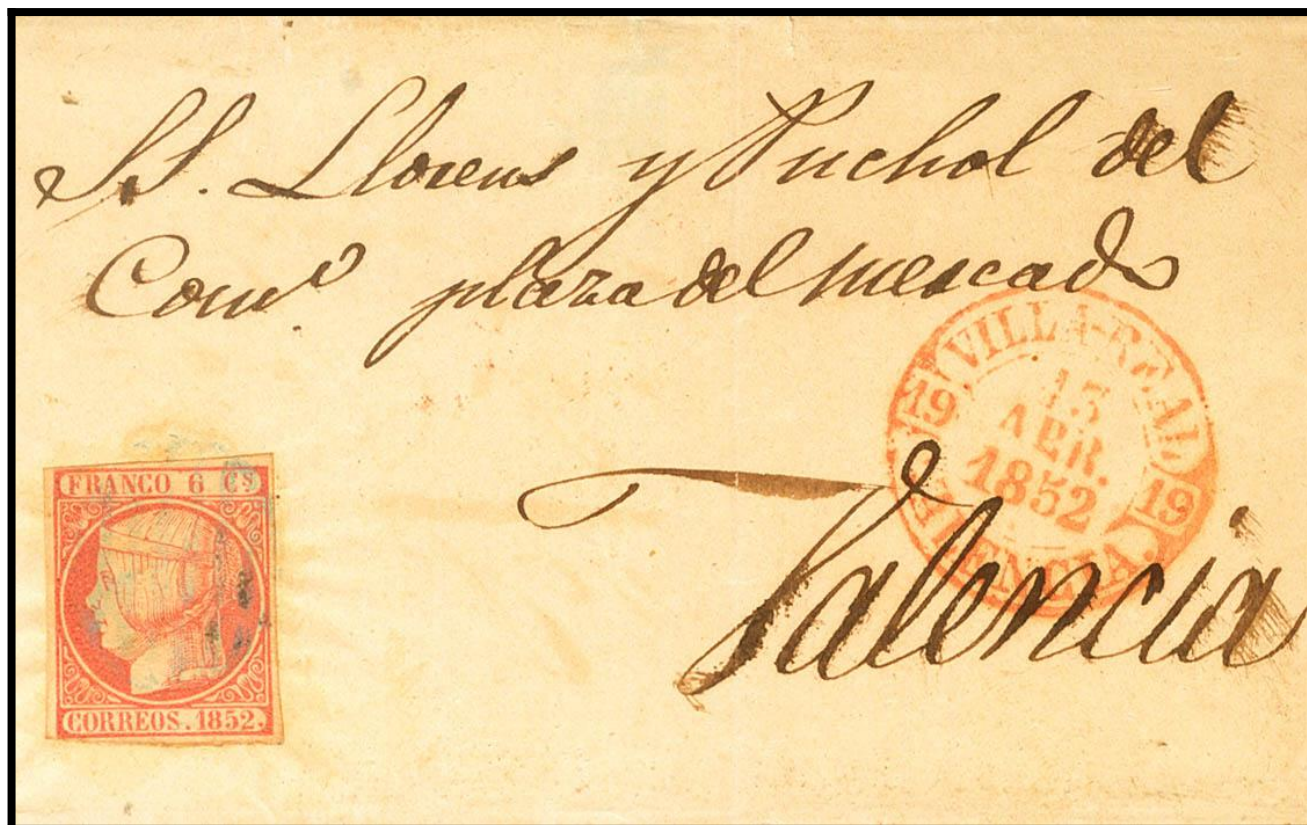 SS. Llorens y Puchol del
Comº. plaza del mercado
VILLA-REAL
19
13
ABR.
1852
19
VALENCIA.
FRANCO 6 CS
CORREOS. 1852.
Valencia